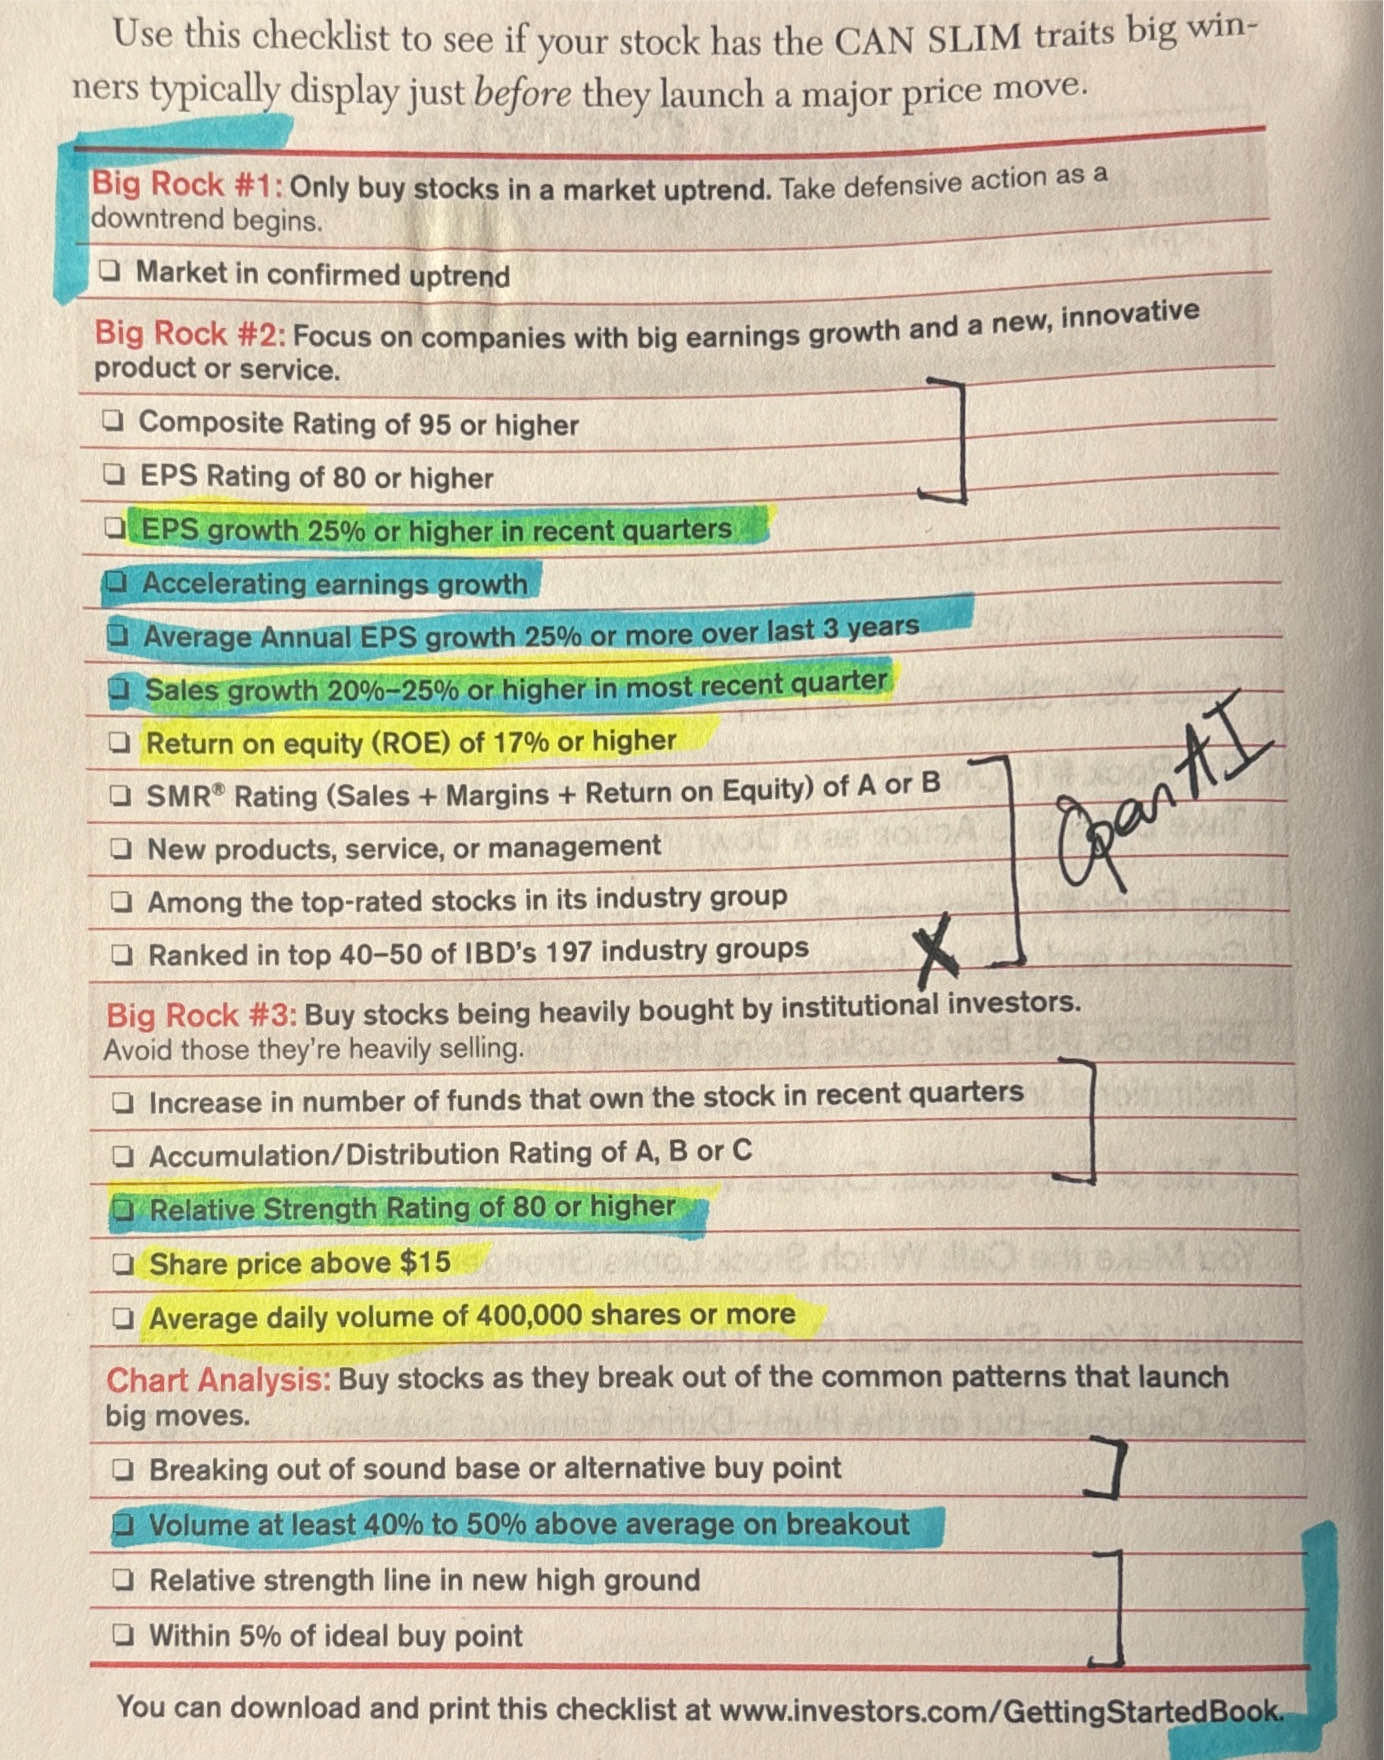 Use this checklist to see if your stock has the CAN SLIM traits big win-
ners typically display just before they launch a major price move.
Big Rock #1: Only buy stocks in a market uptrend. Take defensive action as a
downtrend begins.
❏ Market in confirmed uptrend
Big Rock #2: Focus on companies with big earnings growth and a new, innovative
product or service.
❏ Composite Rating of 95 or higher
❏ EPS Rating of 80 or higher
❏ EPS growth 25% or higher in recent quarters
❏ Accelerating earnings growth
❏ Average Annual EPS growth 25% or more over last 3 years
❏ Sales growth 20%–25% or higher in most recent quarter
❏ Return on equity (ROE) of 17% or higher
❏ SMR® Rating (Sales + Margins + Return on Equity) of A or B
OpenAI
❏ New products, service, or management
❏ Among the top-rated stocks in its industry group
❏ Ranked in top 40–50 of IBD's 197 industry groups X
Big Rock #3: Buy stocks being heavily bought by institutional investors.
Avoid those they're heavily selling.
❏ Increase in number of funds that own the stock in recent quarters
❏ Accumulation/Distribution Rating of A, B or C
❏ Relative Strength Rating of 80 or higher
❏ Share price above $15
❏ Average daily volume of 400,000 shares or more
Chart Analysis: Buy stocks as they break out of the common patterns that launch
big moves.
❏ Breaking out of sound base or alternative buy point
❏ Volume at least 40% to 50% above average on breakout
❏ Relative strength line in new high ground
❏ Within 5% of ideal buy point
You can download and print this checklist at www.investors.com/GettingStartedBook.